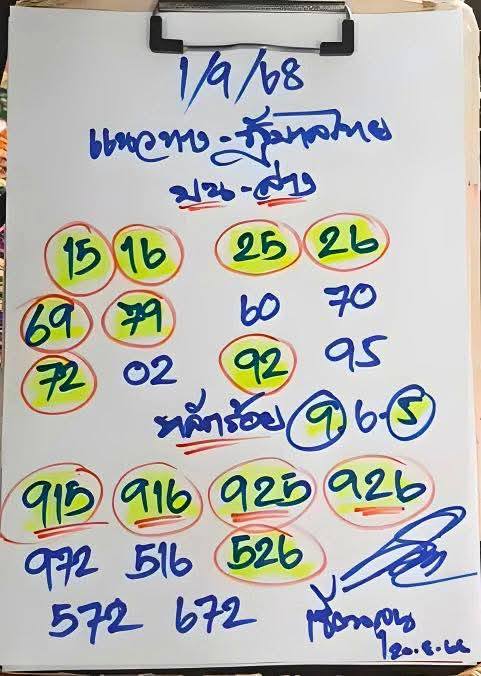 1/9/68
แนวทาง - รัฐบาลไทย
บน - ล่าง
15 16 25 26
69 79 60 70
72 02 92 95
หลักร้อย 9. 6. 5
915 916 925 926
972 516 526
572 672